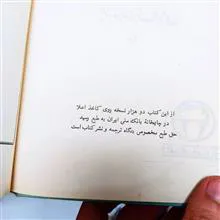 از این کتاب دو هزار نسخه روی کاغذ اعلا
در چاپخانهٔ بانک ملی ایران به طبع رسید
حق طبع مخصوص بنگاه ترجمه و نشر کتاب است